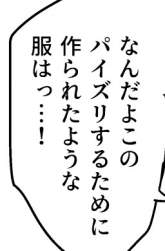 なんだよこの
パイズリするために
作られたような
服はっ…！